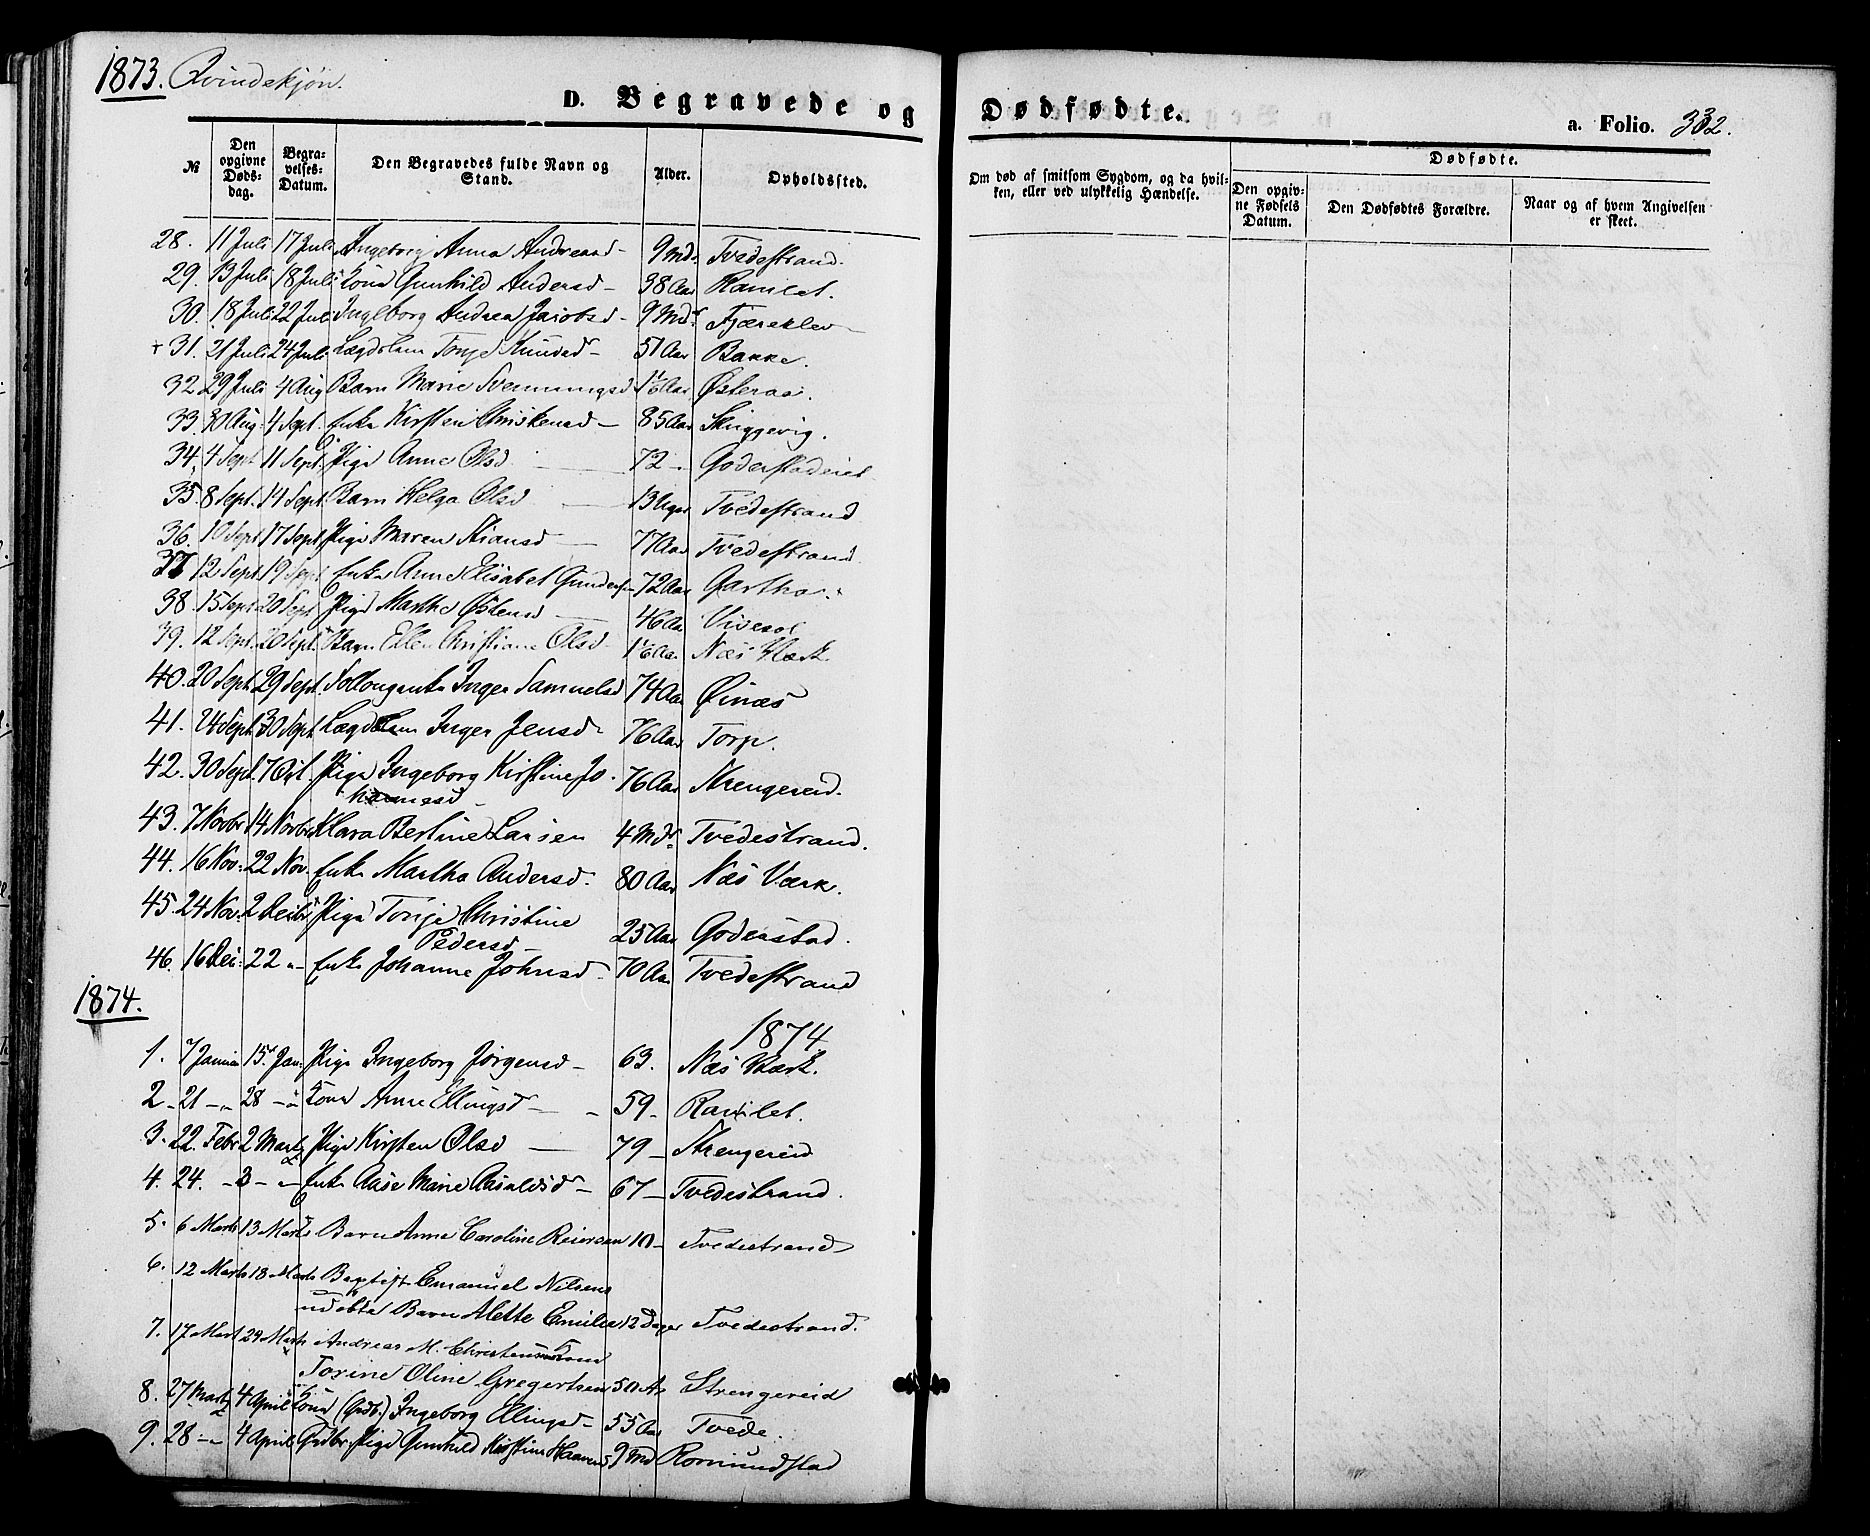 1873. Qvindekjøn.
D. Begravede og Dødfødte.
a. Folio. 332.
№ Den opgivne Dødsdag. Begravelses-Datum. Den Begravedes fulde Navn og Stand. Alder. Opholdssted. Om død af smitsom Sygdom, og da hvilken, eller ved ulykkelig Hændelse. Dødfødte. Den opgivne Fødsels Datum. Den Dødfødtes Forældre. Naar og af hvem Angivelsen er skeet.
28. 11 Juli 17 Juli Ingeborg Anna Andreasd 9 Md. Tvedestrand.
29. 13 Juli 18 Juli Kone Gunhild Andersd 38 Aar Ramlet.
30. 18 Juli 22 Juli Ingeborg Andrea Jacobsd 9 Md. Fjæreklev
+ 31. 21 Juli 24 Juli Lægdslem Torje Knudsd 51 Aar Bakke.
32 29 Juli 4 Aug Barn Marie Svenningsd Aar Østeraa.
33. 30 Aug. 4 Sept. Enke Kirsten 85 Aar Skuggevig.
34. 4 Sept 11 Sept. Pige Anne Olsd 72 Goderstadeiet
35. 8 Sept. 14 Sept Barn Helga Olsd 13 Uger Tvedestrand
36. 10 Sept 17 Sept Pige Maren Stiansd 77 Aar Tvedestrand
37 12 Sept 19 Sept Enke Anne Elisabet Gunders 72 Aar Gartha.
38. 15 Sept 20 Sept Pige Marthe Østensd 46 Aar
39. 12 Sept. 20 Sept. Barn Ellen Christiane Olsd Aar Næs Værk
40. 20 Sept 29 Sept. Inger Samuelsd 74 Aar Øinæs
41. 24 Sept 30 Sept Lægdslem Inger Jensd 76 Aar Torp.
42. 30 Sept. 7 Oct. Pige Ingeborg Kirstine Jo-
hannesd 76 Aar Strengereid.
43. 7 Novbr 14 Novbr Klara Bertine Larsen 4 Mdr. Tvedestrand.
44. 16 Nov. 22 Nov. Enke Martha Andersd. 80 Aar Næs Værk.
45. 24 Nov. 2 Decbr Pige Torje Christine
Pedersd 25 Aar Goderstad.
46. 16 Dec: 22 " Enke Johanne Johnsd. 70 Aar Tvedestrand
1874.
1874
1. 7 Januar 15. Jan. Pige Ingeborg Jørgensd 63. Næs Værk.
2 21 " 28 " Kone Anne Ellingsd 59 Ramlet.
3. 22. Febr 2 Marts Pige Kirsten Olsd 79 Strengereid
4. 24. " 3 " Enke Aase Marie Aasulvsd 67 Tvedestrand.
5. 6 Marts 13 Marts Barn Anne Caroline Reiersen 10 Tvedestrand
6. 12 Marts 18 Marts Baptist Emanuel Nilsens
udøbte Barn Alette Emilie 12 Dage Tvedestrand.
7. 17 Mart 29 Marts Andreas M. Christensens Kone
Torine Oline Gregertsen 50 Aar Strengereid
8. 27 Marts 4 April Kone (Grdb.) Ingeborg Ellingsd 55 Aar Tvede.
9. 28 " 4 April Grdbr. Pige Gunhild Kirstine 9 Md Romundstad